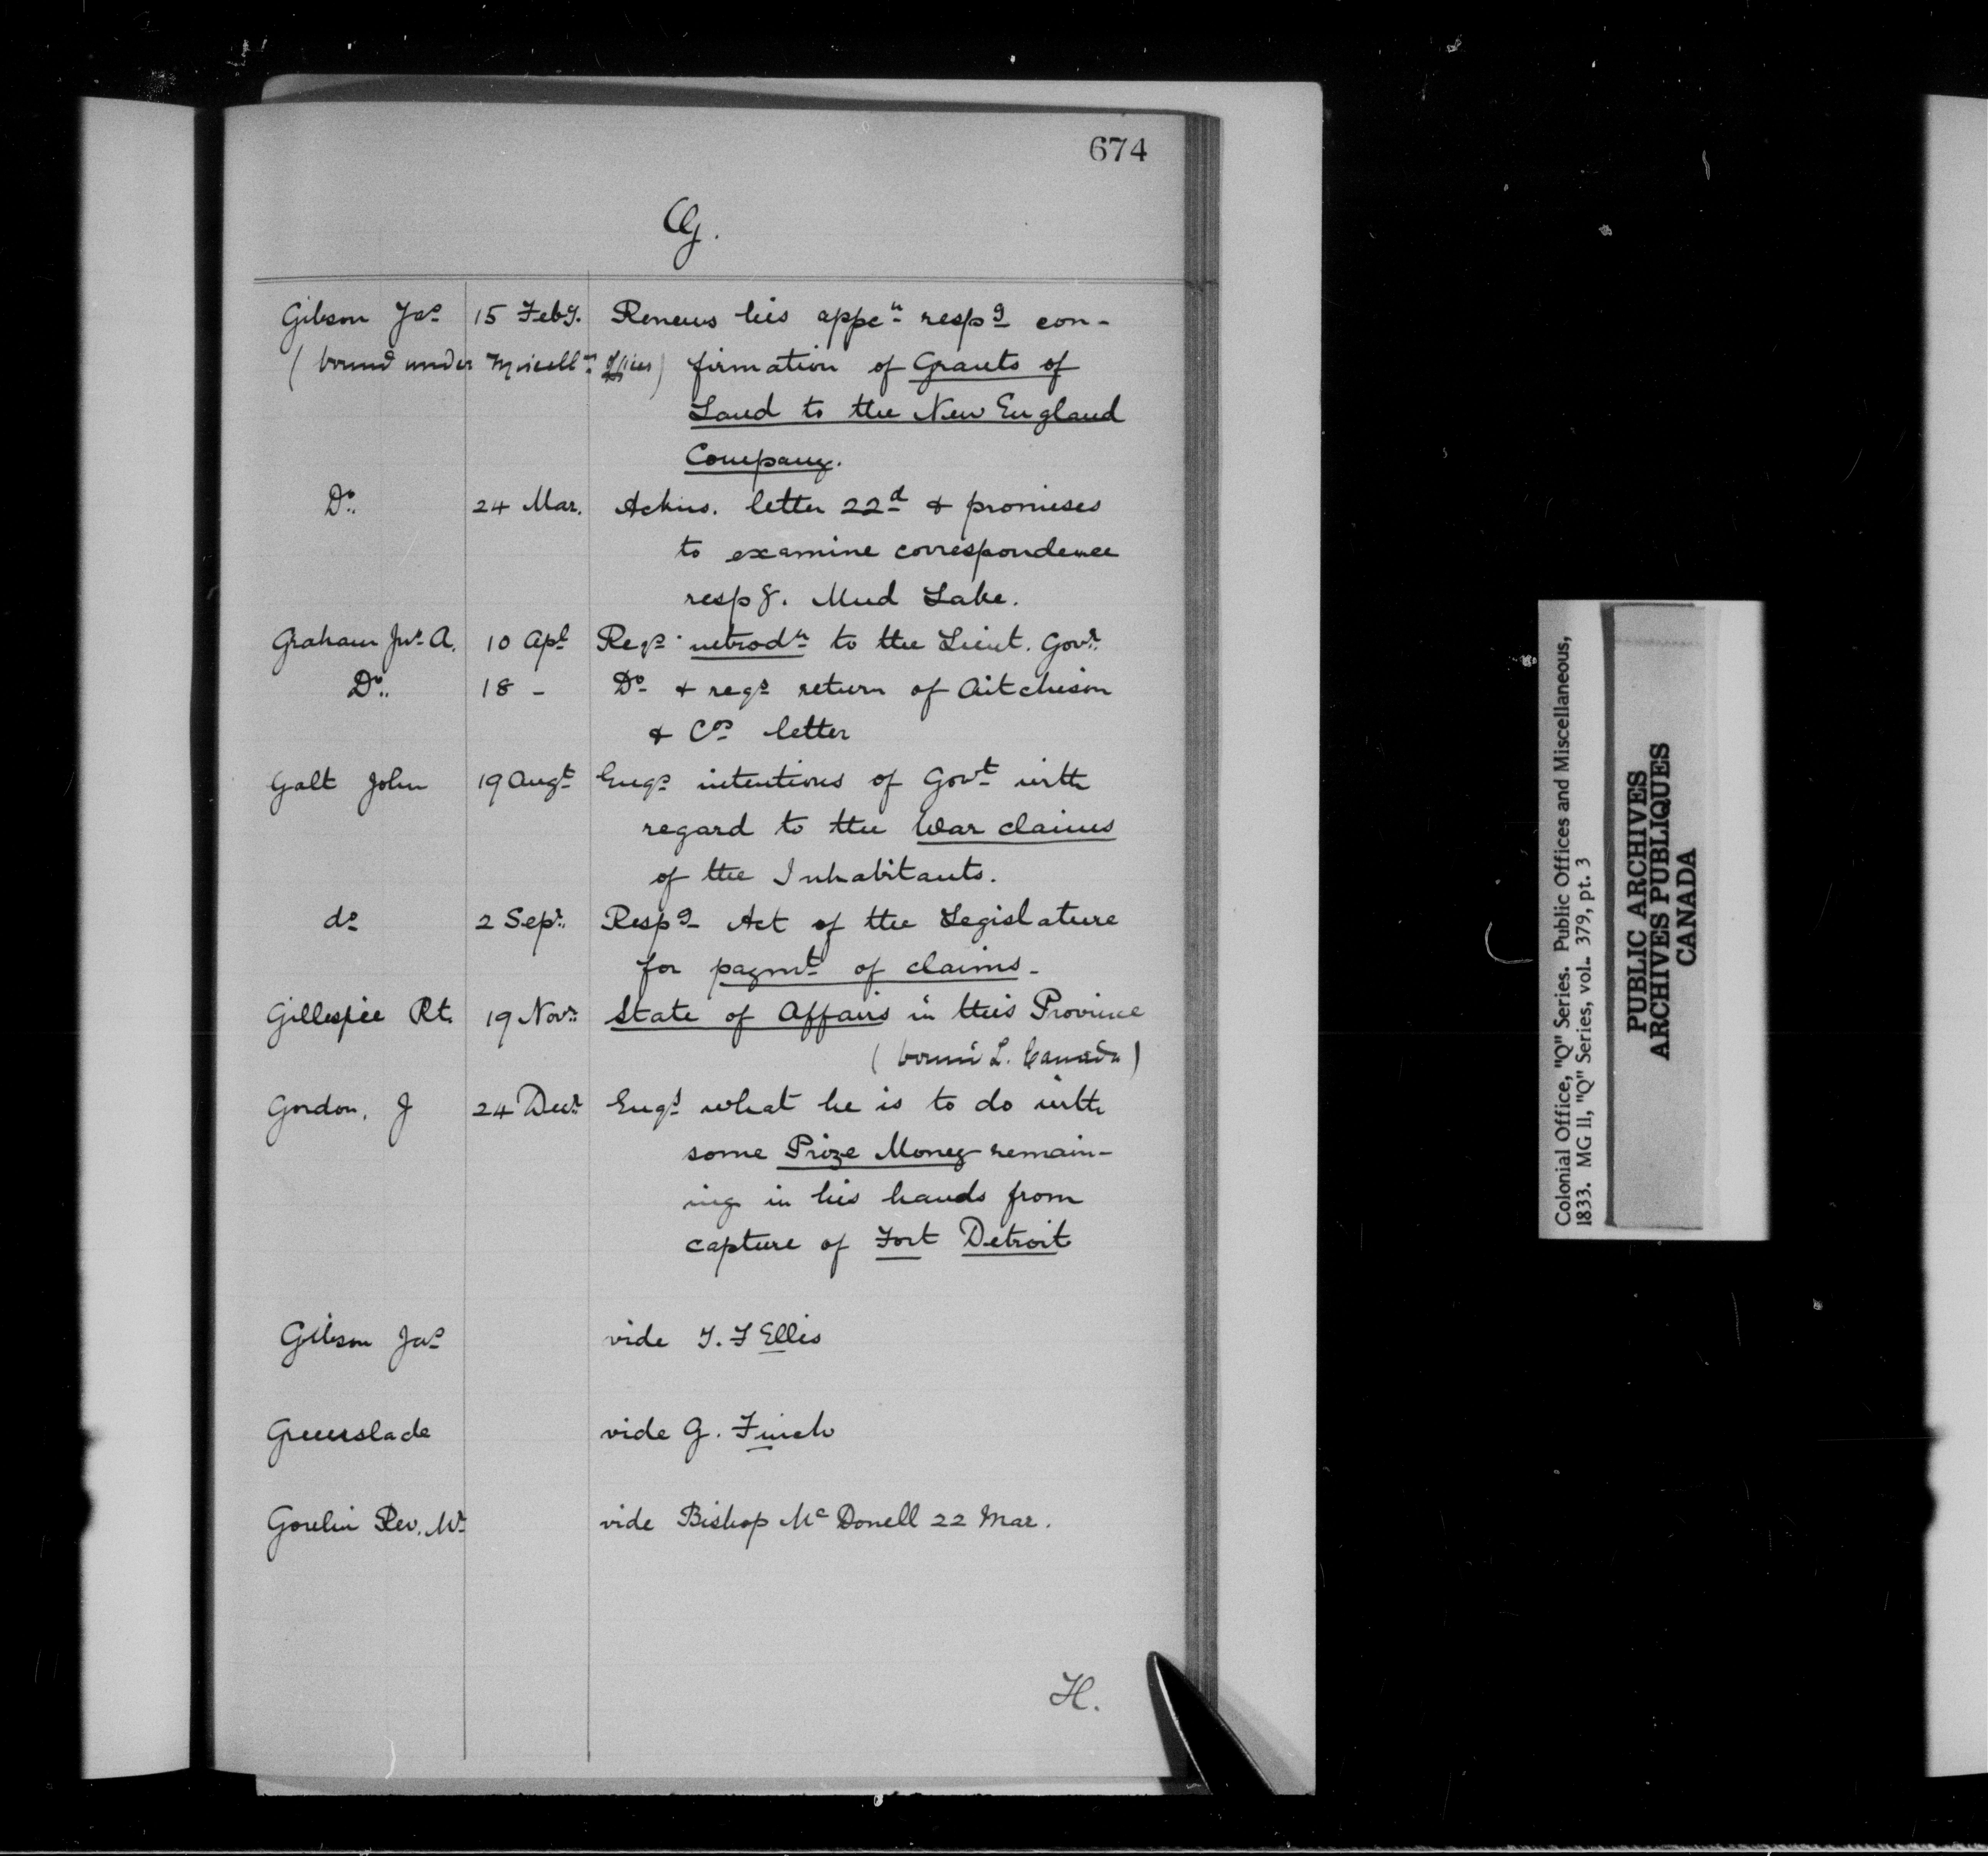 674
G.
Gibson Jas 15 Feby. Renews his appcn respg con-
(bound under Miscells Offices) firmation of Grants of
Land to the New England
Company.
Do. 24 Mar. Ackns. letter 22d & promises
to examine correspondence
respg. Mud Lake.
Graham Jno A. 10 Apl Reqs introdn to the Lieut. Govr.
Do. 18 - Do & reqs return of Aitchison
& Cos letter
Galt John 19 Augt Enqs intentions of Govt with
regard to the War claims
of the Inhabitants.
do 2 Sepr. Respg Act of the Legislature
for paymt of claims.
Gillespie Rt. 19 Novr. State of Affairs in this Province
(bound L. Canada)
Gordon, J 24 Decr. Enqs what he is to do with
some Prize Money remain-
ing in his hands from
capture of Fort Detroit
Gibson Jas vide T. F Ellis
Greenslade vide G. Finch
Rev. Mr vide Bishop Mc Donell 22 Mar.
H.
Colonial Office, "Q" Series. Public Offices and Miscellaneous,
1833. MG 11, "Q" Series, vol. 379, pt. 3
PUBLIC ARCHIVES
ARCHIVES PUBLIQUES
CANADA